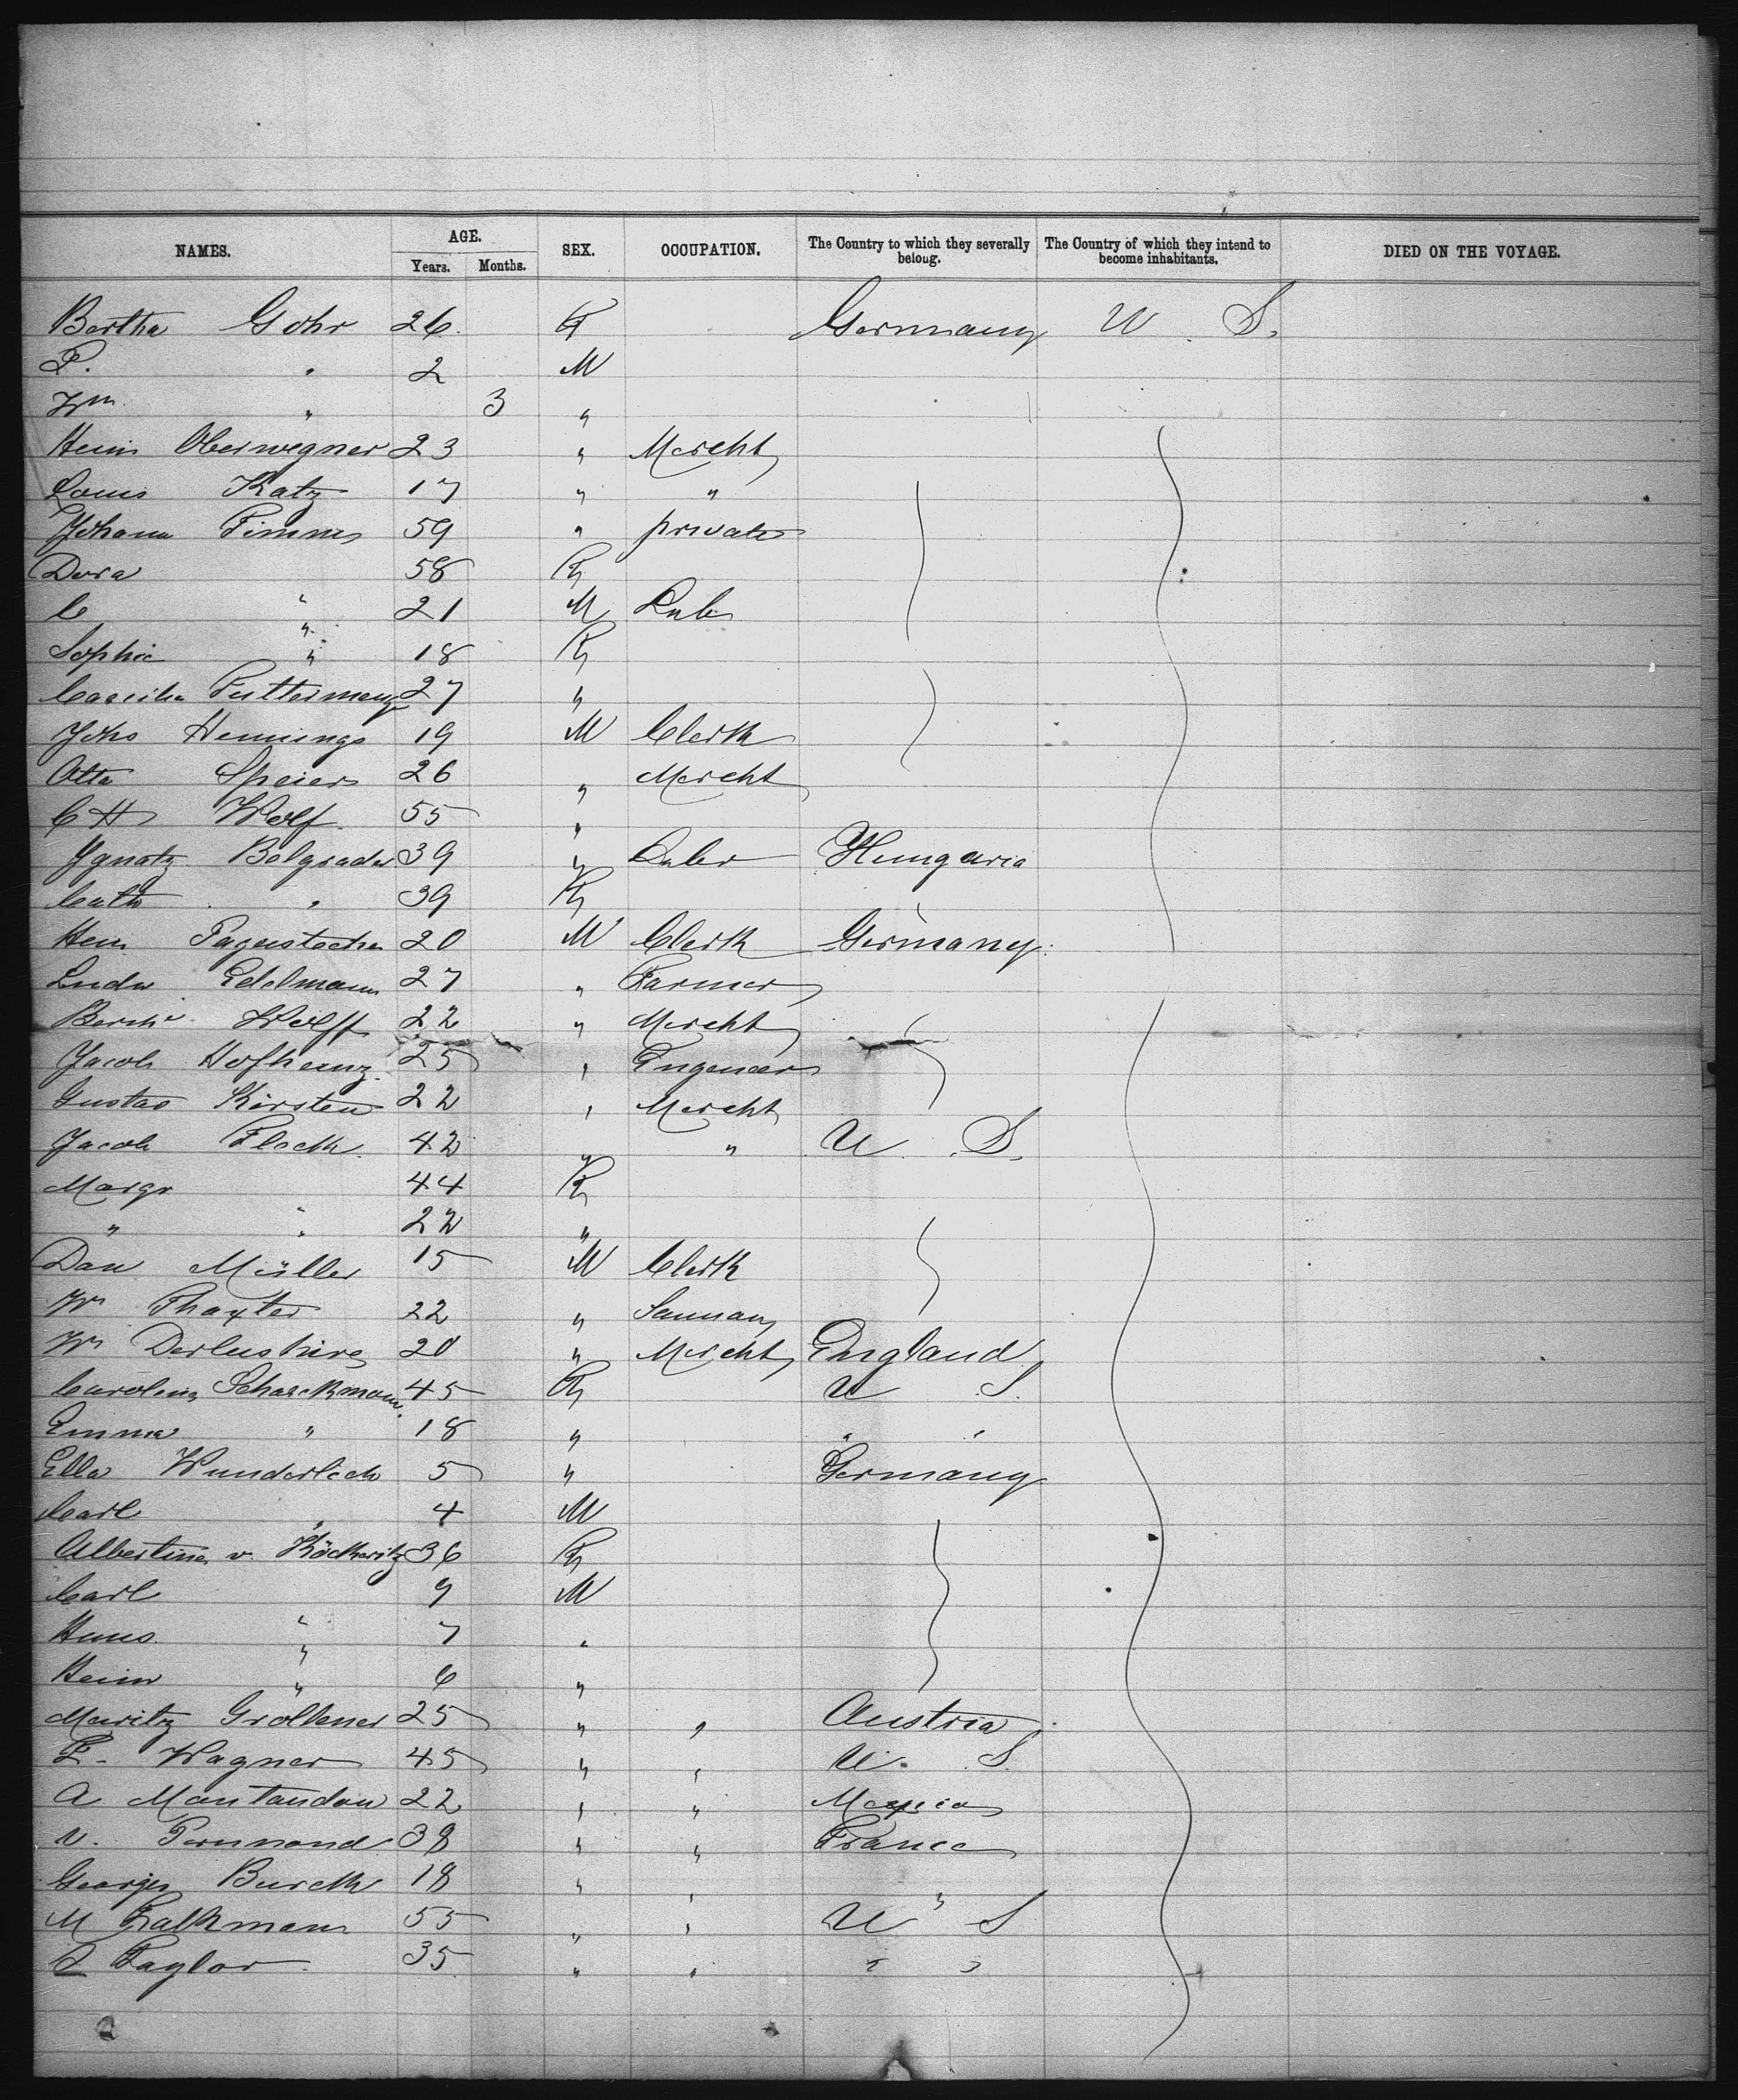 NAMES. AGE. SEX. OCCUPATION. The Country to which they severally belong. The Country of which they intend to become inhabitants. DIED ON THE VOYAGE.
Years. Months.
Bertha Gohr 26 F Germany U. S.
F. " 2 M
Wm " 3 "
Heinr Oberwegner 23 " Mercht
Louis Katz 17 " "
Johann Timms 59 " private
Dora 58 F
C " 21 M Lab
Sophie " 18 F
Caecilia 27 "
Johs Hennings 19 M Clerk
Otto Speier 26 " Mercht
C H Wolf 55 "
Ygnatz Belgrader 39 " Hungaria
Cath " 39 F
Hein Pagenstecher 20 M Clerk Germany
Ludw Edelmann 27 " Farmer
Wolff 22 " Mercht
Jacob Hofheinz 25 " Engeneer
Gustav Kirsten 22 " Mercht
Jacob Fleck 42 " " U. S.
Margr 44 F
" " 22 "
Dan Müller 15 M Clerk
Wm Thaxter 22 " Seaman
Wm 20 " Mercht England
Carolina Scharckmann 45 F U S.
Emma " 18 " " "
Ella Wunderlich 5 " Germany
Carl " 4 M
Albertine v. Köckeritz 36 F
Carl 9 M
Hans " 7 "
Heinr " 6 "
Moritz 25 " " Austria
F. Wagner 45 " " U. S.
A Montandon 22 " " Mexico
V. 38 " " France
Georges Burckh 18 " " "
M Falkmann 55 " " U S
S Taylor 35 " " " "